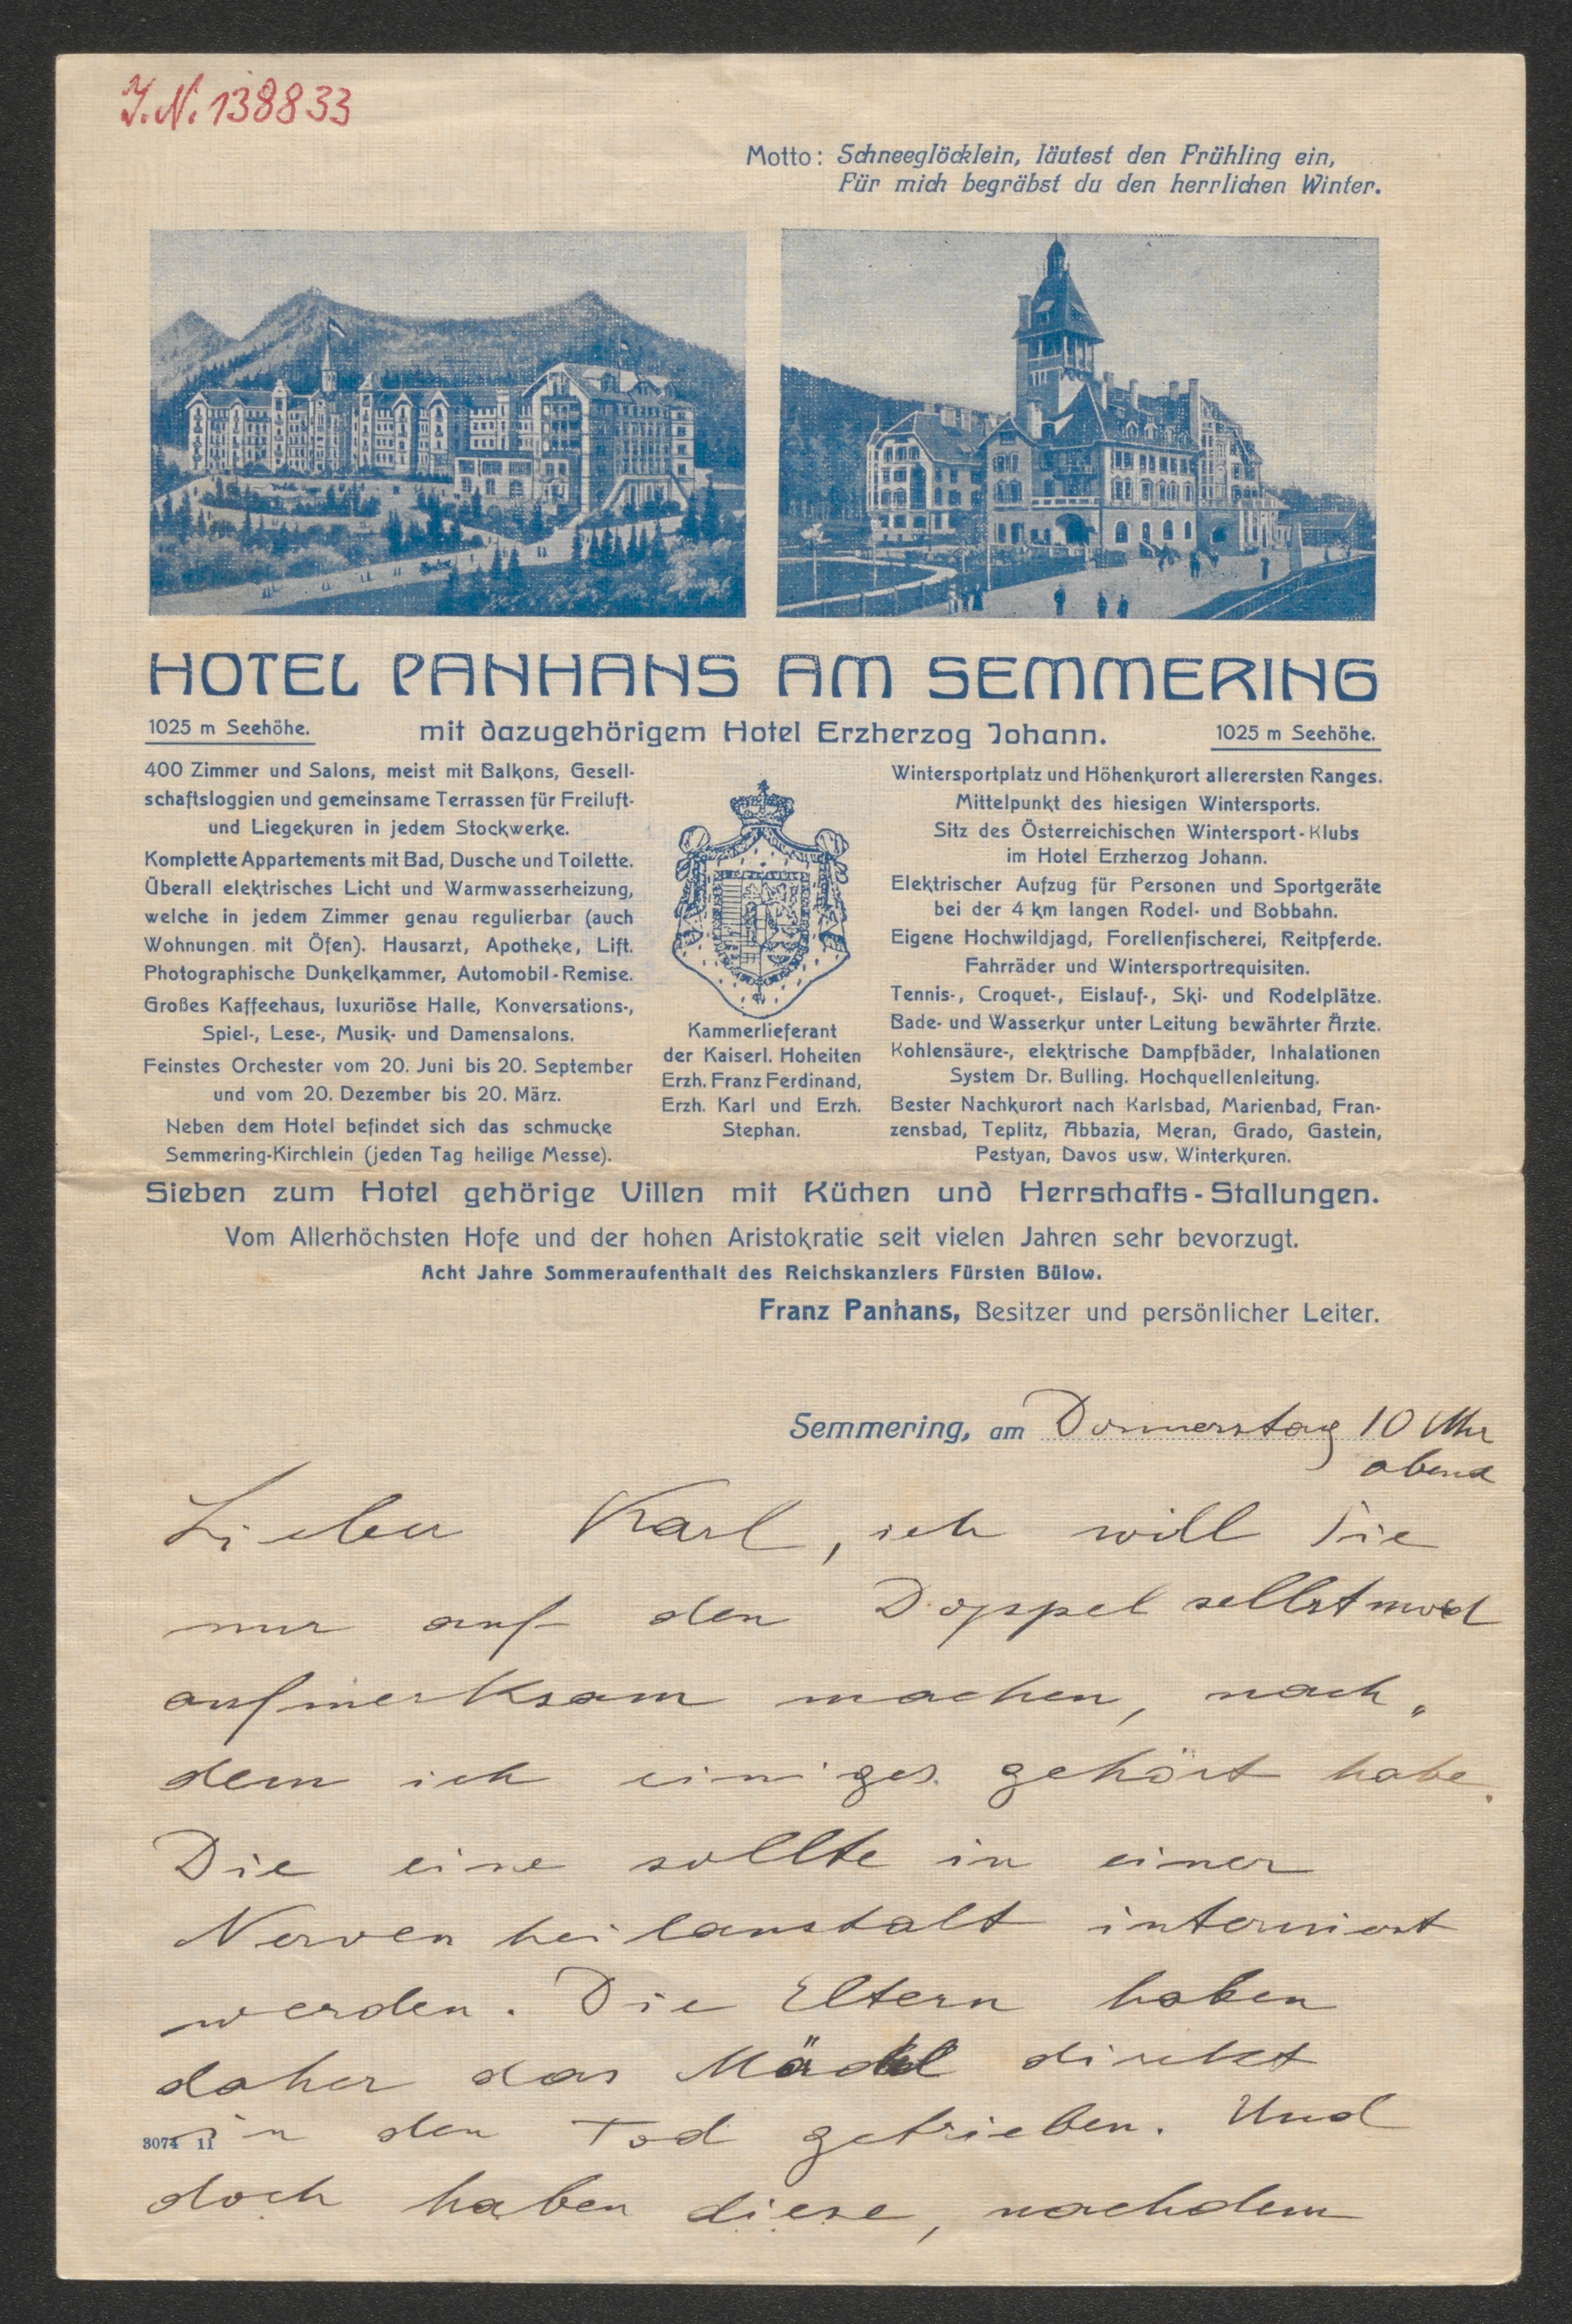 J.N. 138833
Motto: Schneeglöcklein, läutest den Frühling ein,
Für mich begräbst du den herrlichen Winter.
HOTEL PANHANS AM SEMMERING
1025 m Seehöhe.
mit dazugehörigem Hotel Erzherzog Johann.
1025 m Seehöhe.
400 Zimmer und Salons, meist mit Balkons, Gesell-
schaftsloggien und gemeinsame Terrassen für Freiluft-
und Liegekuren in jedem Stockwerke.
Komplette Appartements mit Bad, Dusche und Toilette.
Überall elektrisches Licht und Warmwasserheizung,
welche in jedem Zimmer genau regulierbar (auch
Wohnungen mit Öfen). Hausarzt, Apotheke, Lift.
Photographische Dunkelkammer, Automobil-Remise.
Großes Kaffeehaus, luxuriöse Halle, Konversations-,
Spiel-, Lese-, Musik- und Damensalons.
Feinstes Orchester vom 20. Juni bis 20. September
und vom 20. Dezember bis 20. März.
Neben dem Hotel befindet sich das schmucke
Semmering-Kirchlein (jeden Tag heilige Messe).
Kammerlieferant
der Kaiserl. Hoheiten
Erzh. Franz Ferdinand,
Erzh. Karl und Erzh.
Stephan.
Wintersportplatz und Höhenkurort allerersten Ranges.
Mittelpunkt des hiesigen Wintersports.
Sitz des Österreichischen Wintersport-Klubs
im Hotel Erzherzog Johann.
Elektrischer Aufzug für Personen und Sportgeräte
bei der 4 km langen Rodel- und Bobbahn.
Eigene Hochwildjagd, Forellenfischerei, Reitpferde.
Fahrräder und Wintersportrequisiten.
Tennis-, Croquet-, Eislauf-, Ski- und Rodelplätze.
Bade- und Wasserkur unter Leitung bewährter Ärzte.
Kohlensäure-, elektrische Dampfbäder, Inhalationen
System Dr. Bulling. Hochquellenleitung.
Bester Nachkurort nach Karlsbad, Marienbad, Fran-
zensbad, Teplitz, Abbazia, Meran, Grado, Gastein,
Pestyan, Davos usw. Winterkuren.
Sieben zum Hotel gehörige Villen mit Küchen und Herrschafts-Stallungen.
Vom Allerhöchsten Hofe und der hohen Aristokratie seit vielen Jahren sehr bevorzugt.
Acht Jahre Sommeraufenthalt des Reichskanzlers Fürsten Bülow.
Franz Panhans, Besitzer und persönlicher Leiter.
Semmering, am Donnerstag 10 Uhr
abend
Lieber Karl, ich will Sie
nur auf den Doppelselbstmord
aufmerksam machen, nach„
dem ich einiges gehört habe.
Die eine sollte in einer
Nervenheilanstalt interniert
werden. Die Eltern haben
daher das Mädel direkt
in den Tod getrieben. Und
3074 11
doch haben diese, nachdem